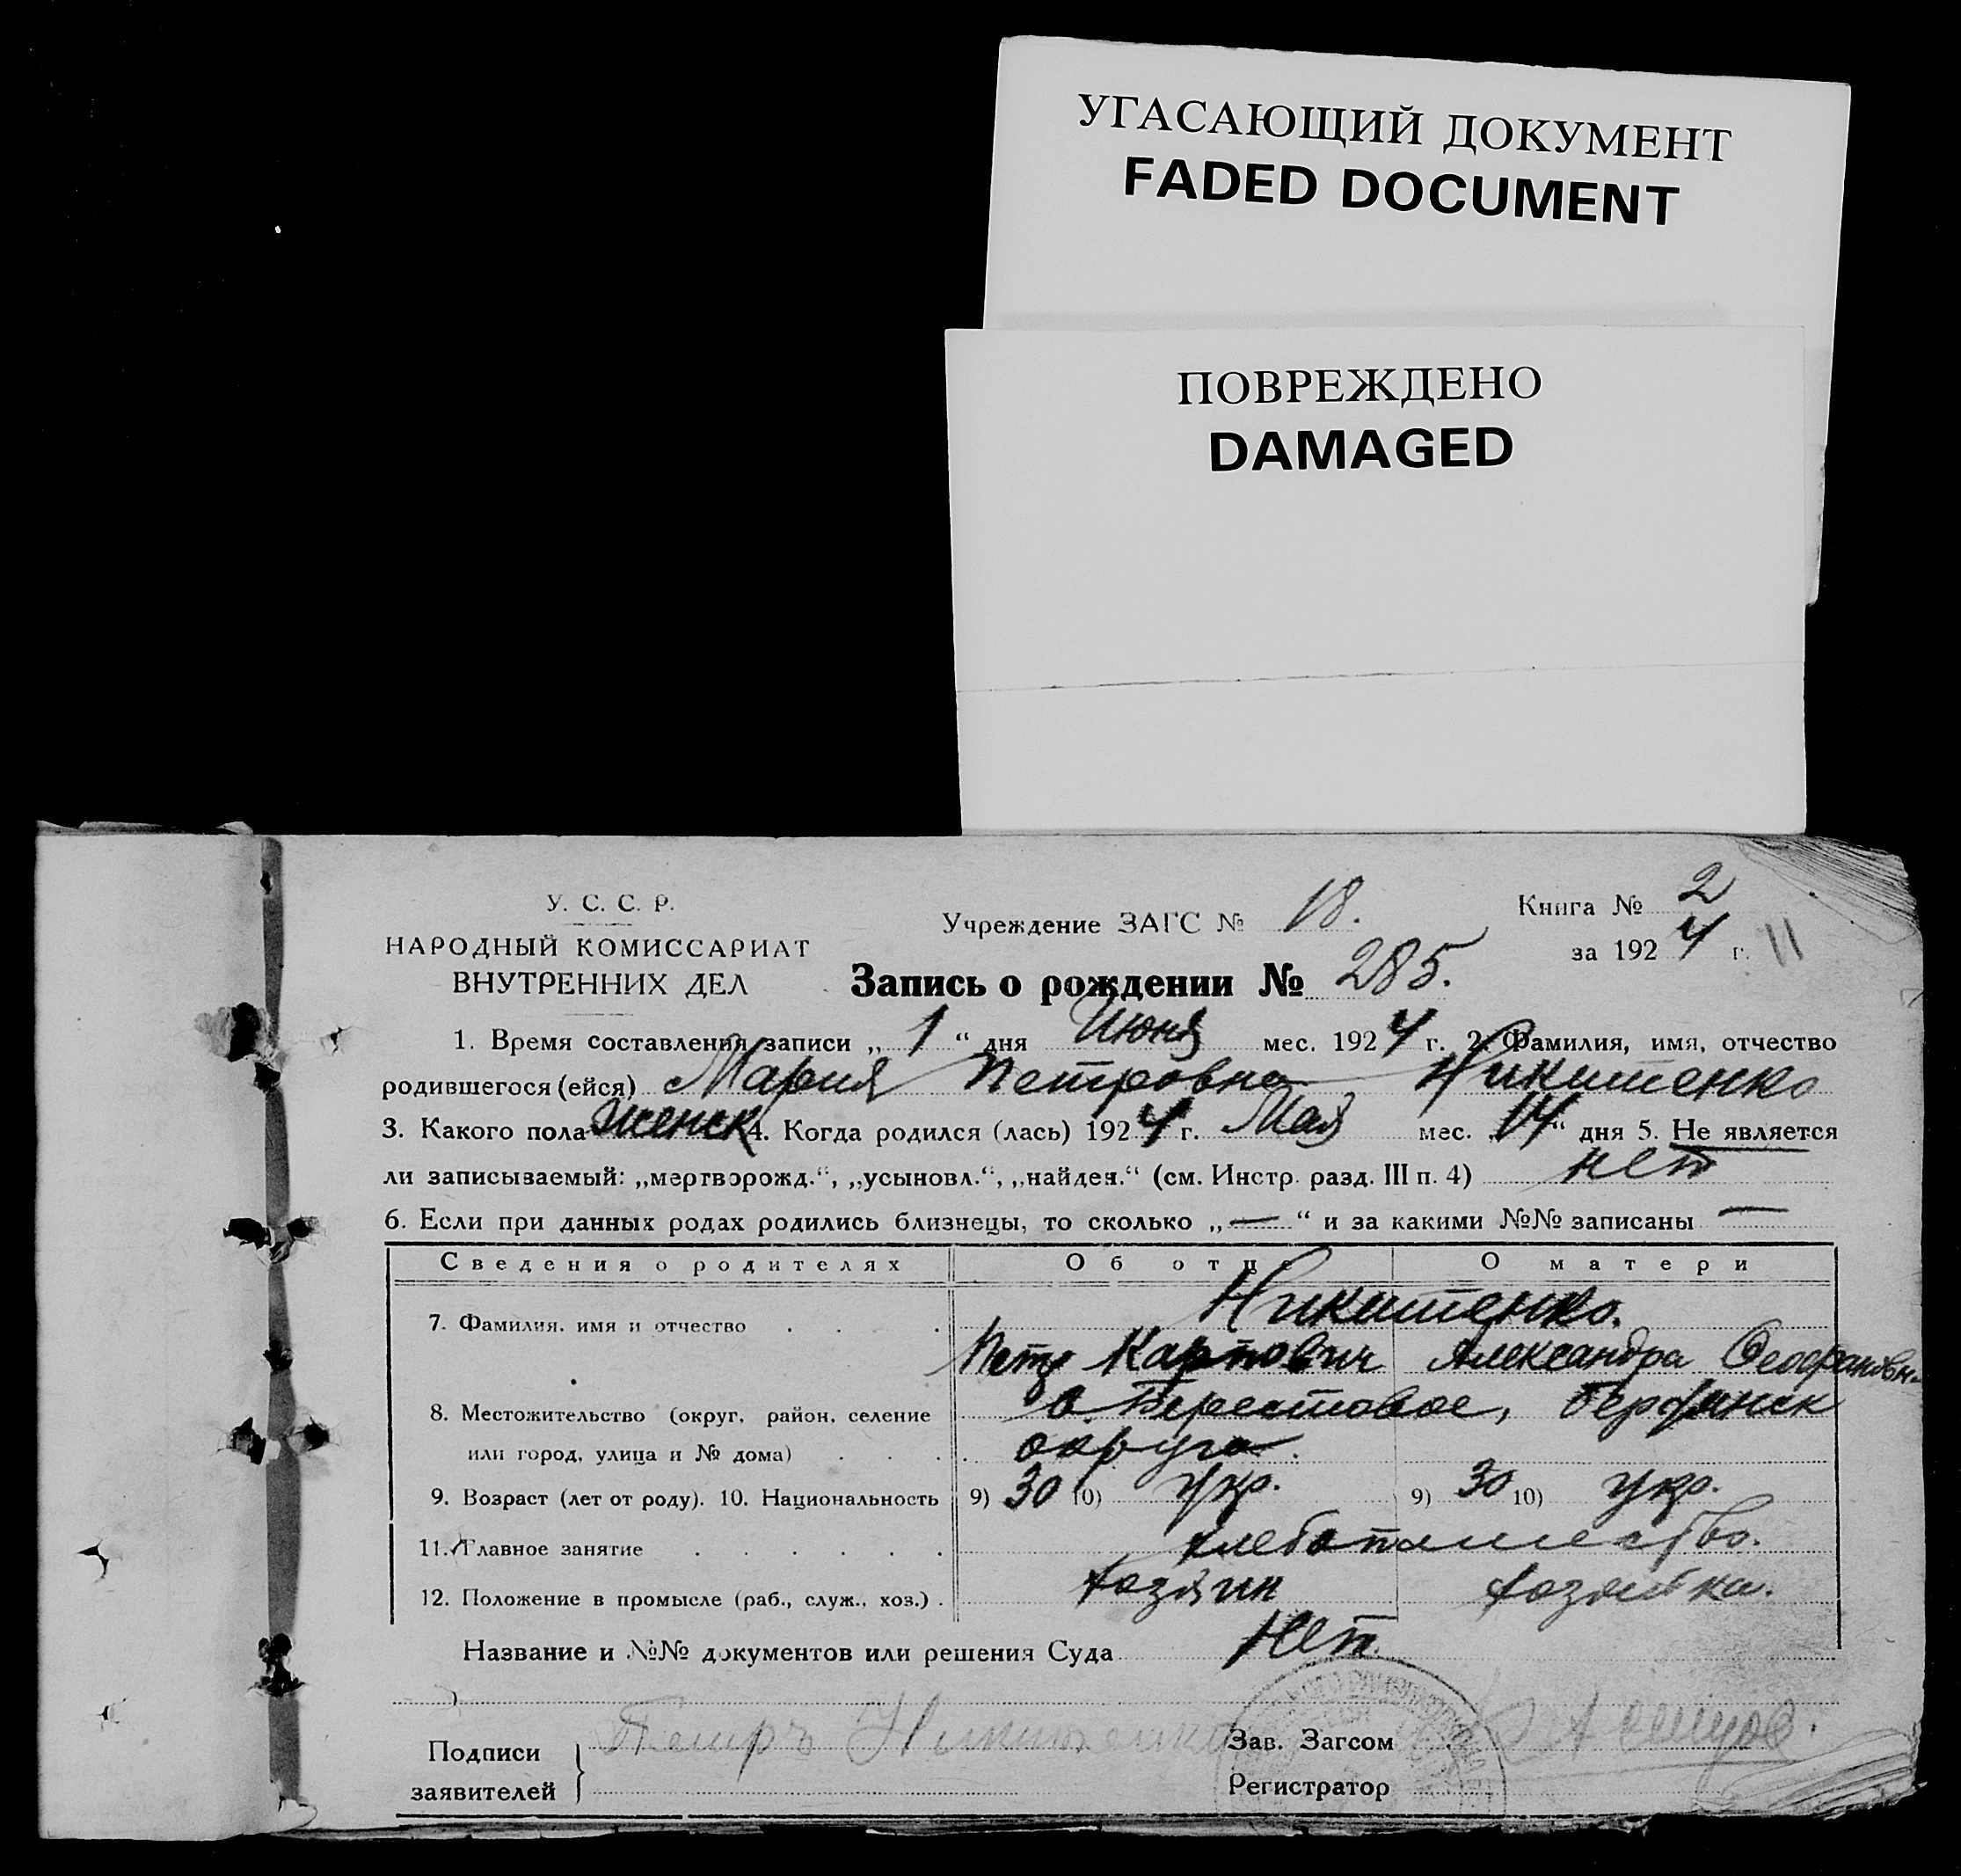 УГАСАЮЩИЙ ДОКУМЕНТ
FADED DOCUMENT
ПОВРЕЖДЕНО
DAMAGED
У. С. С. Р.
НАРОДНЫЙ КОМИССАРИАТ
ВНУТРЕННИХ ДЕЛ
Учреждение ЗАГС № 18.
Книга № 2
за 1924 г. 11
Запись о рождении № 285.
1. Время составления записи „ 1 “ дня Июня мес. 1924 г. 2. Фамилия, имя, отчество
родившегося (ейся) Мария Петровна Никитенко
3. Какого пола женск 4. Когда родился (лась) 1924 г. Мая мес. „14“ дня 5. Не является
ли записываемый: „мертворожд.“, „усыновл.“, „найден.“ (см. Инстр. разд. III п. 4) нет
6. Если при данных родах родились близнецы, то сколько „—“ и за какими №№ записаны —
Сведения о родителях Об отце О матери
7. Фамилия, имя и отчество Никитенко.
Петр Карпович Александра Феофановн.
8. Местожительство (округ, район, селение с. Берестовое, Бердянск
или город, улица и № дома) округа.
9. Возраст (лет от роду). 10. Национальность 9) 30 10) укр. 9) 30 10) укр.
11. Главное занятие хлебопашество.
12. Положение в промысле (раб., служ., хоз.) хозяин хозяйка.
Название и №№ документов или решения Суда Нет
Подписи Петръ Никитенко Зав. Загсом
заявителей Регистратор